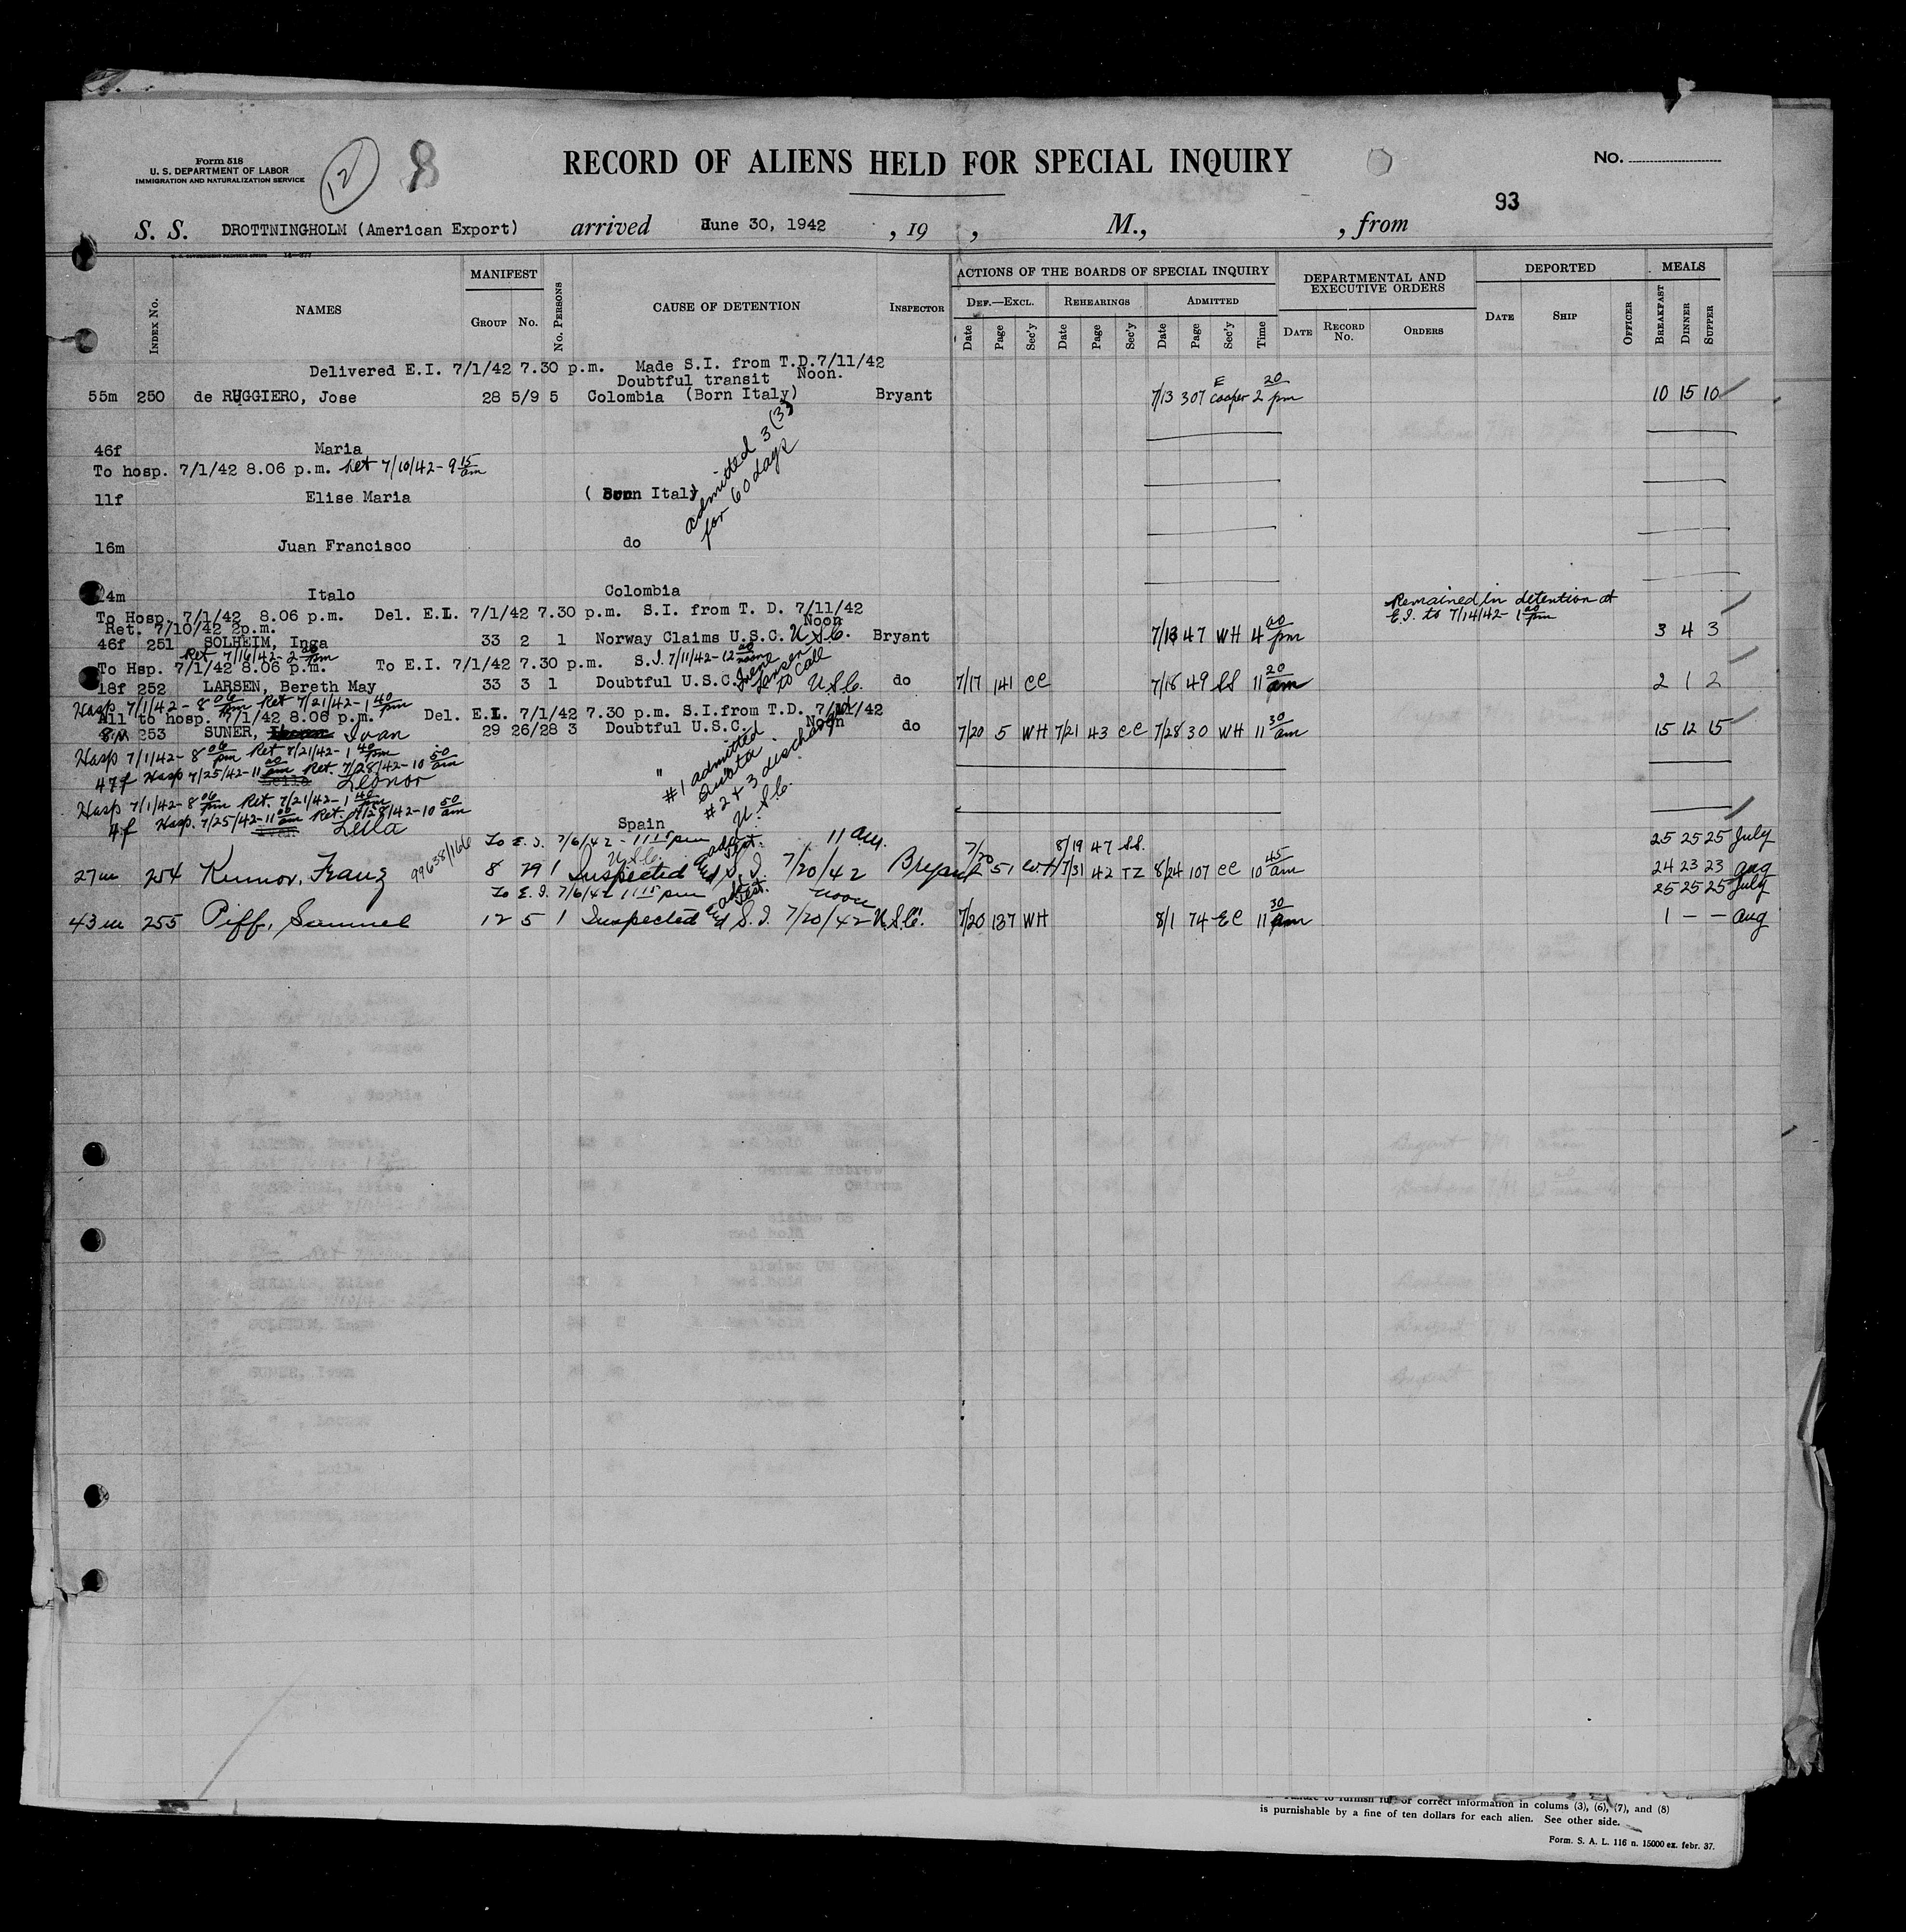 Form 518
U. S. DEPARTMENT OF LABOR
IMMIGRATION AND NATURALIZATION SERVICE
12
RECORD OF ALIENS HELD FOR SPECIAL INQUIRY
No.
93
S. S. DROTTNINGHOLM (American Export) arrived June 30, 1942 , 19 , M., , from
INDEX NO. NAMES MANIFEST GROUP NO. NO. PERSONS CAUSE OF DETENTION INSPECTOR
ACTIONS OF THE BOARDS OF SPECIAL INQUIRY
DEF.—EXCL. REHEARINGS ADMITTED
Date Page Sec'y Date Page Sec'y Date Page Sec'y Time
DEPARTMENTAL AND EXECUTIVE ORDERS
DATE RECORD NO. ORDERS
DEPORTED
DATE SHIP OFFICER
MEALS
BREAKFAST DINNER SUPPER
Delivered E.I. 7/1/42 7.30 p.m. Made S.I. from T.D.7/11/42
Doubtful transit Noon.
55m 250 de RUGGIERO, Jose 28 5/9 5 Colombia (Born Italy) Bryant 7/13 307 E Cooper 2 20 pm 10 15 10
46f Maria
To hosp. 7/1/42 8.06 p.m. Ret 7/10/42 - 9 15 am
admitted 3(3)
for 60 days
11f Elise Maria (Born Italy
16m Juan Francisco do
14m Italo Colombia
To Hosp. 7/1/42 8.06 p.m. Del. E.I. 7/1/42 7.30 p.m. S.I. from T. D. 7/11/42
Ret. 7/10/42 2p.m. Noon
Remained in detention at
E.I. to 7/14/42 - 1 00 pm
46f 251 SOLHEIM, Inga 33 2 1 Norway Claims U.S.C. U.S.C. Bryant 7/13 47 WH 4 00 pm 3 4 3
Ret 7/16/42 - 2 pm
To Hsp. 7/1/42 8.06 p.m. To E.I. 7/1/42 7.30 p.m. S.I. 7/11/42 - 12 00 noon
18f 252 LARSEN, Bereth May 33 3 1 Doubtful U.S.C. U.S.C. do 7/17 141 CC 7/18 49 SS 11 20 am 2 1 2
to call
Hosp 7/1/42 - 8 06 pm Ret 7/21/42 - 1 40 pm
All to hosp. 7/1/42 8.06 p.m. Del. E.I. 7/1/42 7.30 p.m. S.I.from T.D. 7/11/42
Noon
8M 253 SUNER, Ivan 29 26/28 3 Doubtful U.S.C. do 7/20 5 WH 7/21 43 CC 7/28 30 WH 11 30 am 15 12 15
Hosp 7/1/42 - 8 06 pm Ret 7/21/42 - 1 40 pm
47f Hosp 7/25/42 - 11 00 am Ret. 7/28/42 - 10 50 am
Leonor "
#1 admitted
Quota.
#2 + 3 discharged
U.S.C.
Hosp 7/1/42 - 8 06 pm Ret. 7/21/42 - 1 40 pm
4f Hosp. 7/25/42 - 11 00 am Ret. 7/28/42 - 10 50 am
Leila Spain
To E.I. 7/6/42 - 11 15 pm 11 am. 8/19 47 SS. 25 25 25 July
27m 254 Franz 99638/166 8 29 1 Suspected S.I. 7/20/42 Bryant 7/20 51 WH 7/31 42 TZ 8/24 107 CC 10 45 am 24 23 23 Aug
To E.I. 7/6/42 11 15 pm noon 25 25 25 July
43m 255 Piff, Samuel 12 5 1 Suspected S.I. 7/20/42 U.S.C. " 7/20 137 WH 8/1 74 EC 11 30 am 1 — — Aug
or correct information in colums (3), (6), (7), and (8)
is punishable by a fine of ten dollars for each alien. See other side.
Form. S. A. L. 116 n. 15000 ex. febr. 37.